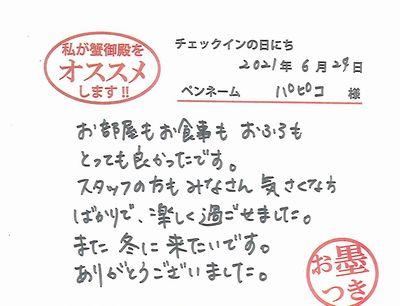 私が蟹御殿を
オススメ
します!!
チェックインの日にち
2021年 6月 29日
ペンネーム ハロピコ 様
お部屋もお食事も おふろも
とっても良かったです。
スタッフの方も みなさん 気さくな方
ばかりで、楽しく過ごせました。
また 冬に 来たいです。
ありがとうございました。
お墨
つき